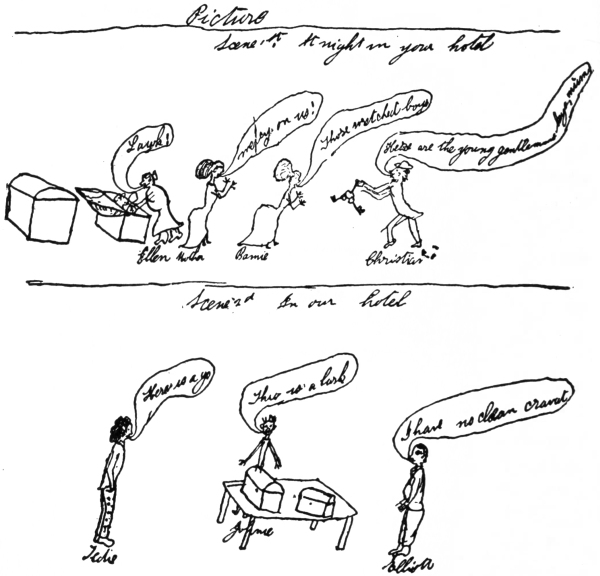 Picture
Scene 1st. At night in your hotel
Lawk!
mercy on us!
Those wretched boys
Here are the young gentlemen's keys, mums
Ellen
Bamie
Christian
Scene 2d In our hotel
Here is a go
This is a lark
I have no clean cravat
Tedie
Johnie
Elliott